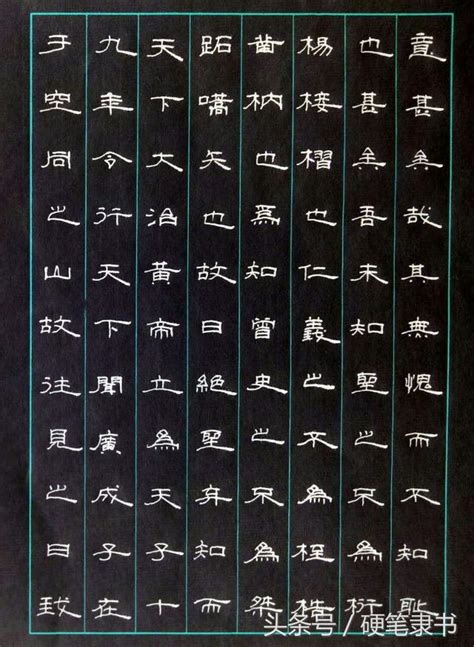 意甚矣哉其無愧而不知恥
也甚矣吾未知聖之不為衍
楊椄槢也仁義之不為桎梏
枘也爲知曾史之不為桀
跖嚆矢也故曰絕聖弃知而
天下大治黃帝立為天子十
九年令行天下聞廣成子在
于空同之山故往見之曰我
头条号 / 硬笔隶书